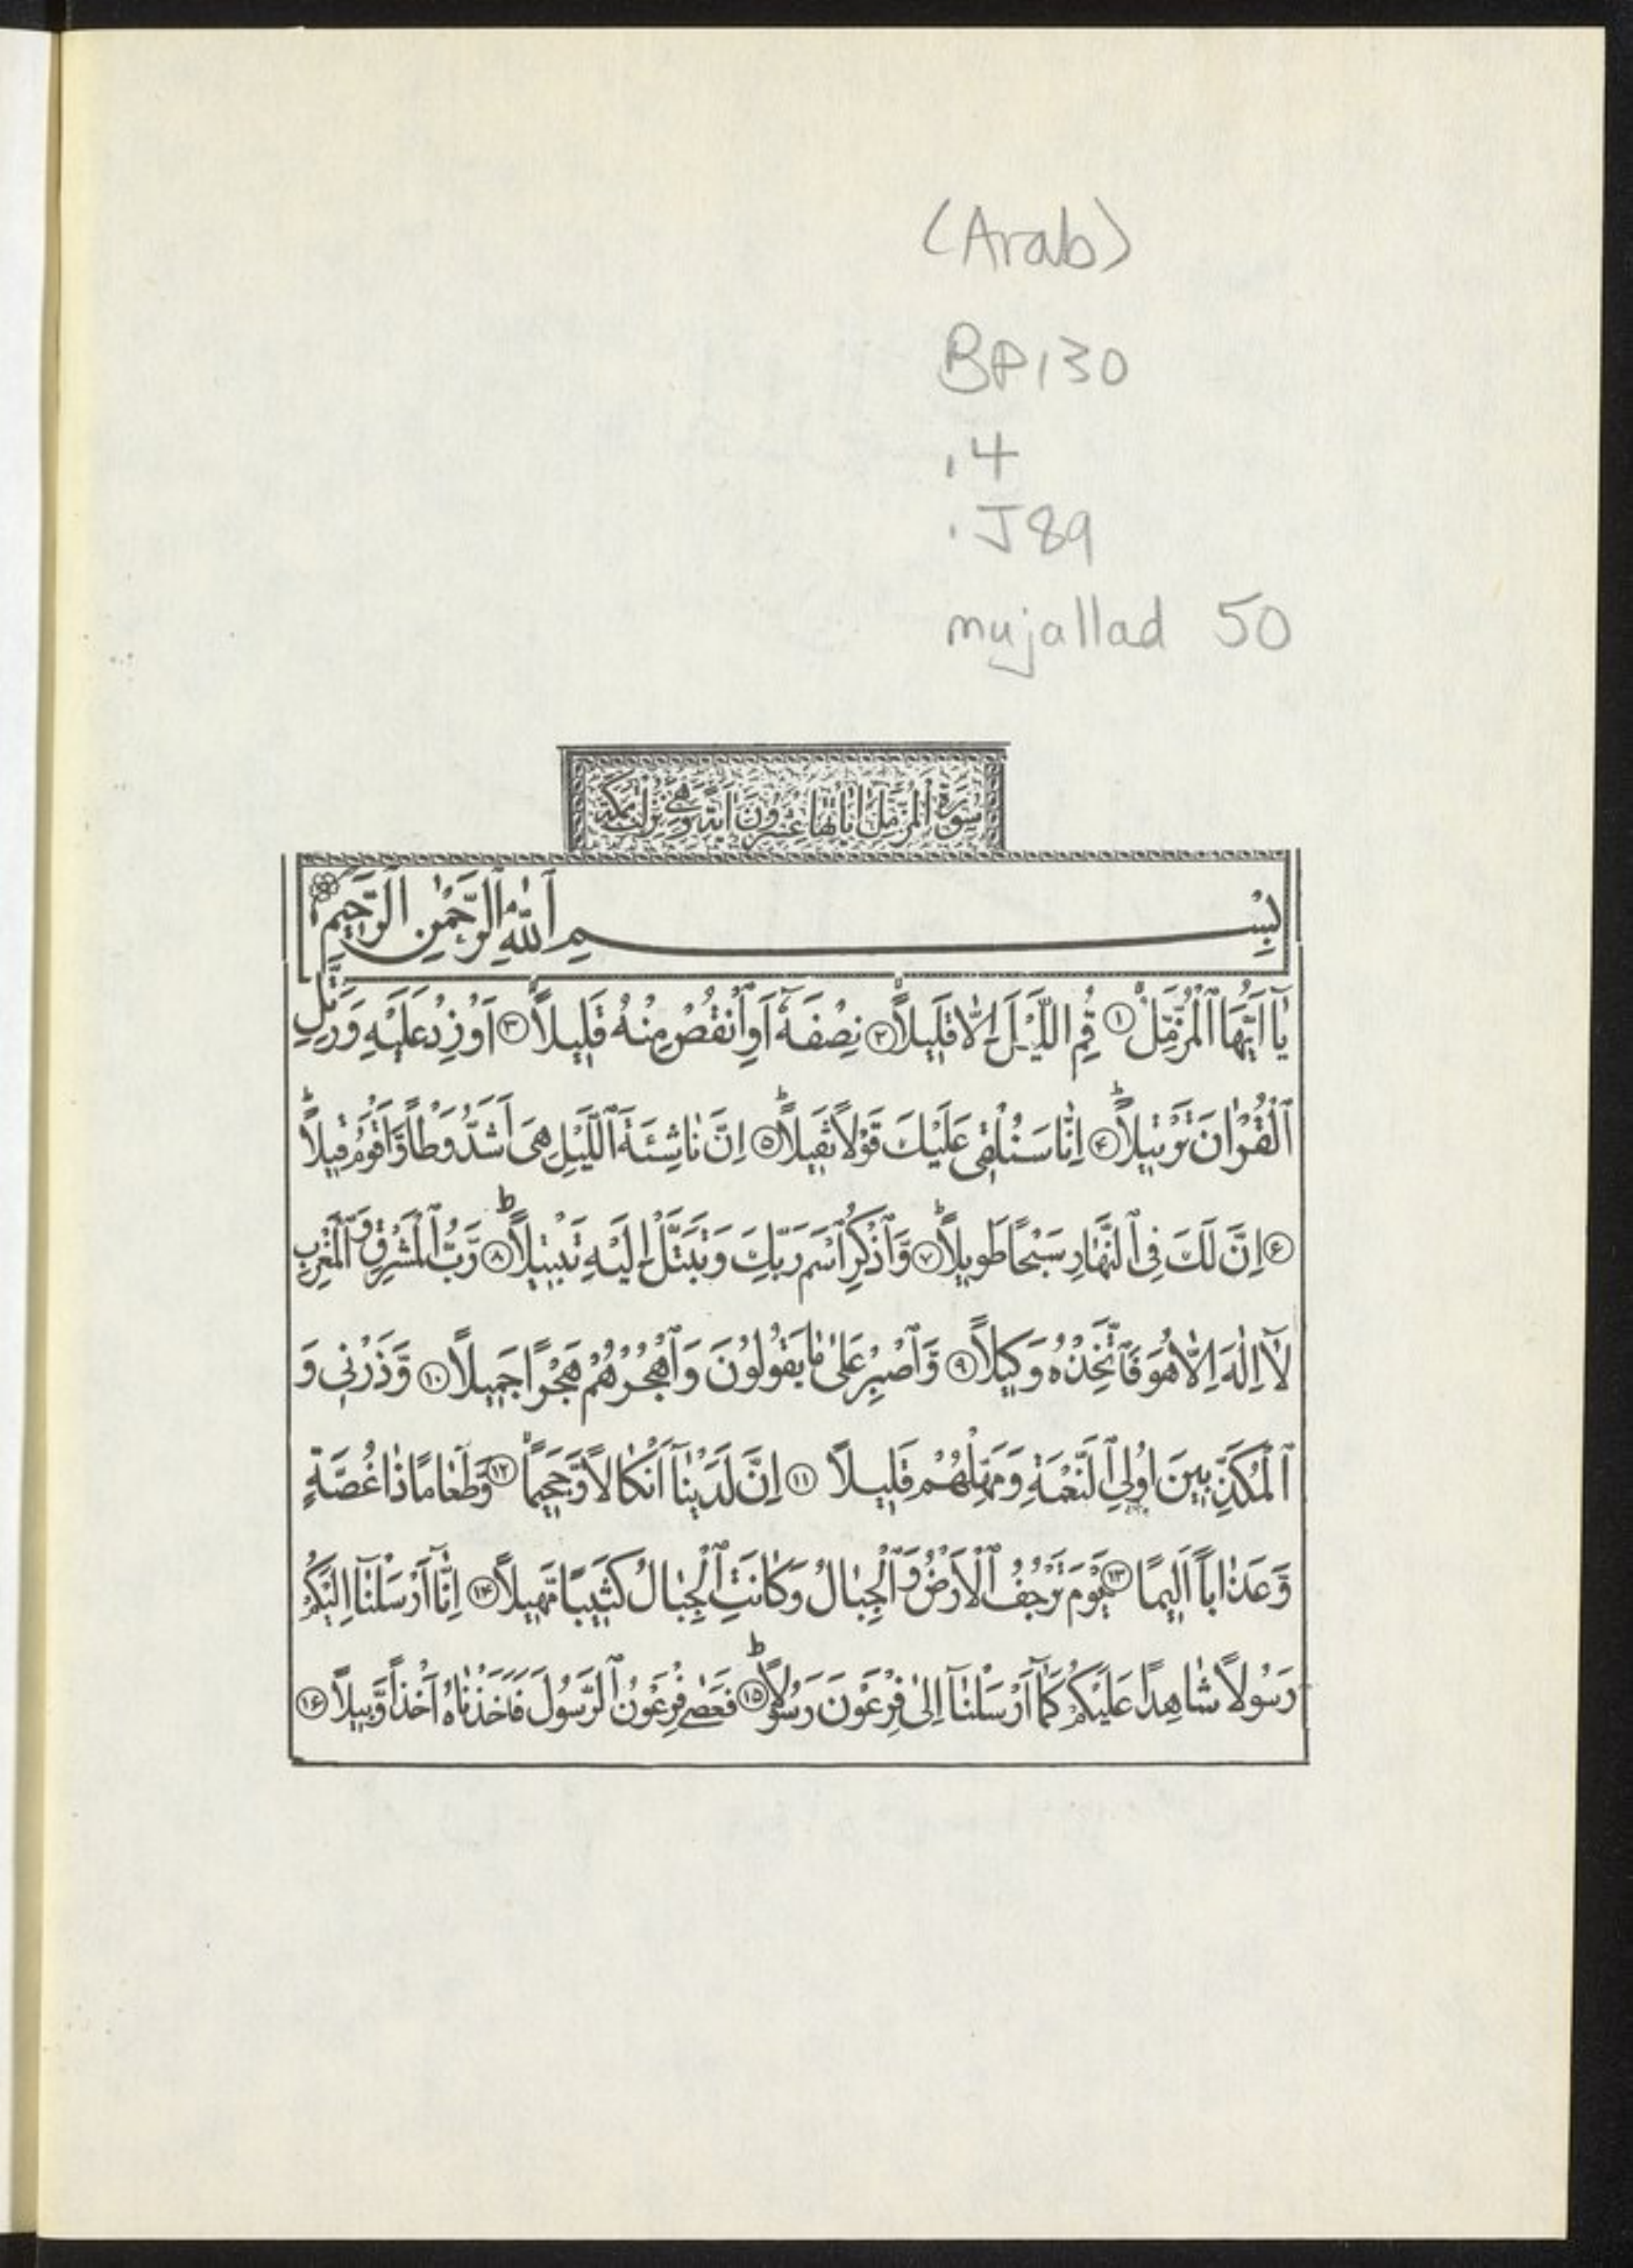 (Arab)
BP130
.4
.J89
mujallad 50
سُورَةُ الْمُزَّمِّلِ اٰيَاتُهَا عِشْرُونَ اٰيَةً وَهِيَ نَزَلَتْ بِمَكَّةَ
بِسْمِ ٱللّٰهِ ٱلرَّحْمٰنِ ٱلرَّحِيمِ
يَاۤ اَيُّهَا ٱلْمُزَّمِّلُ ١ قُمِ اللَّيْلَ اِلاّٰ قَلِيلاً ٢ نِصْفَهُۤ اَوِ ٱنْقُصْ مِنْهُ قَلِيلاً ٣ اَوْ زِدْ عَلَيْهِ وَرَتِّلِ
ٱلْقُرْاٰنَ تَرْتِيلاً ۴ اِنّٰا سَنُلْقِي عَلَيْكَ قَوْلاً ثَقِيلاً ۵ اِنَّ نٰاشِئَةَ ٱللَّيْلِ هِيَ اَشَدُّ وَطْأً وَّاَقْوَمُ قِيلاً
۶ اِنَّ لَكَ فِي ٱلنَّهٰارِ سَبْحًا طَوِيلاً ٧ وَّٱذْكُرِ ٱسْمَ رَبِّكَ وَتَبَتَّلْ اِلَيْهِ تَبْتِيلاً ٨ رَبُّ ٱلْمَشْرِقِ وَٱلْمَغْرِبِ
لاۤ اِلٰهَ اِلاّٰ هُوَ فَٱتَّخِذْهُ وَكِيلاً ٩ وَّٱصْبِرْ عَلىٰ مٰا يَقُولُونَ وَٱهْجُرْهُمْ هَجْرًا جَمِيلاً ١٠ وَّذَرْنِي وَ
ٱلْمُكَذِّبِينَ اُولِي ٱلنَّعْمَةِ وَمَهِّلْهُمْ قَلِيلاً ١١ اِنَّ لَدَيْنٰاۤ اَنْكٰالاً وَّجَحِيماً ١٢ وَّطَعٰامًا ذٰا غُصَّةٍ
وَّعَذٰاباً اَلِيمًا ١٣ يَوْمَ تَرْجُفُ ٱلْاَرْضُ وَٱلْجِبٰالُ وَكٰانَتِ ٱلْجِبٰالُ كَثِيبًا مَّهِيلاً ١۴ اِنّٰاۤ اَرْسَلْنٰاۤ اِلَيْكُمْ
رَسُولاً شٰاهِدًا عَلَيْكُمْ كَمٰاۤ اَرْسَلْنٰاۤ اِلىٰ فِرْعَوْنَ رَسُولاً ١۵ فَعَصىٰ فِرْعَوْنُ ٱلرَّسُولَ فَاَخَذْنٰاهُ اَخْذاً وَّبِيلاً ١۶